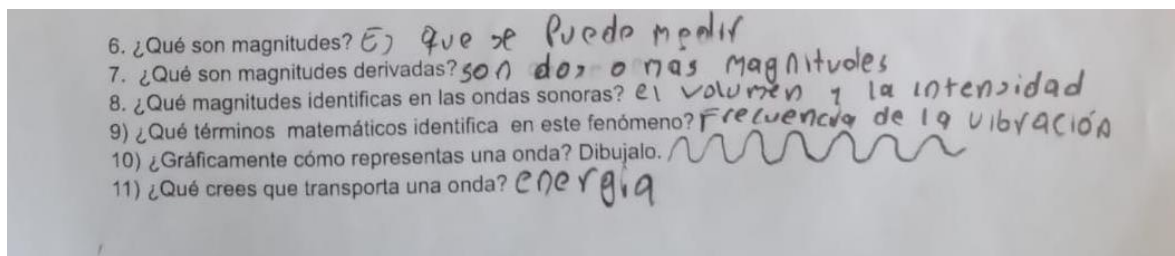 6. ¿Qué son magnitudes? Es que se Puede medir
7. ¿Qué son magnitudes derivadas? son dos o mas magnitudes
8. ¿Qué magnitudes identificas en las ondas sonoras? el volumen y la intensidad
9) ¿Qué términos matemáticos identifica en este fenómeno? Frecuencia de la vibración
10) ¿Gráficamente cómo representas una onda? Dibujalo.
11) ¿Qué crees que transporta una onda? energia